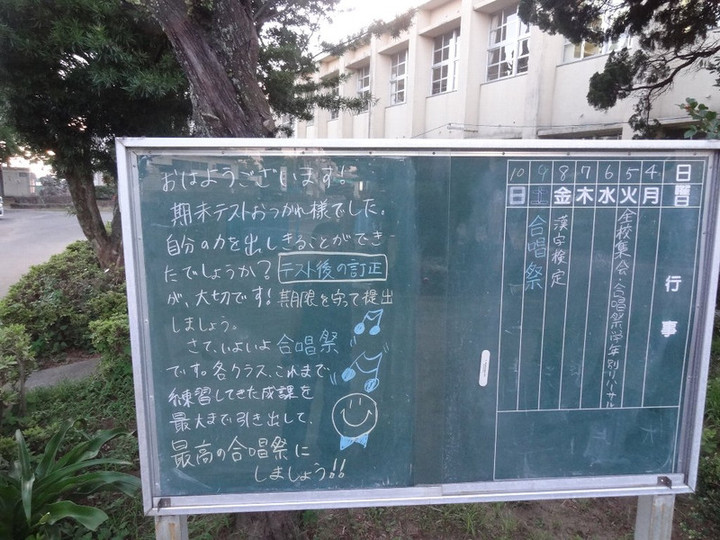 おはようございます!
期末テストおつかれ様でした。
自分の力を出しきることができ
たでしょうか? テスト後の訂正
が、大切です! 期限を守って提出
しましょう。
さて、いよいよ合唱祭
です。各クラス、これまで
練習してきた成課を
最大まで引き出して、
最高の合唱祭に
しましょう!!
日 曜 行事
4 月
5 火 全校集会・合唱祭学年別リハーサル
6 水
7 木
8 金 漢字検定
9 土 合唱祭
10 日